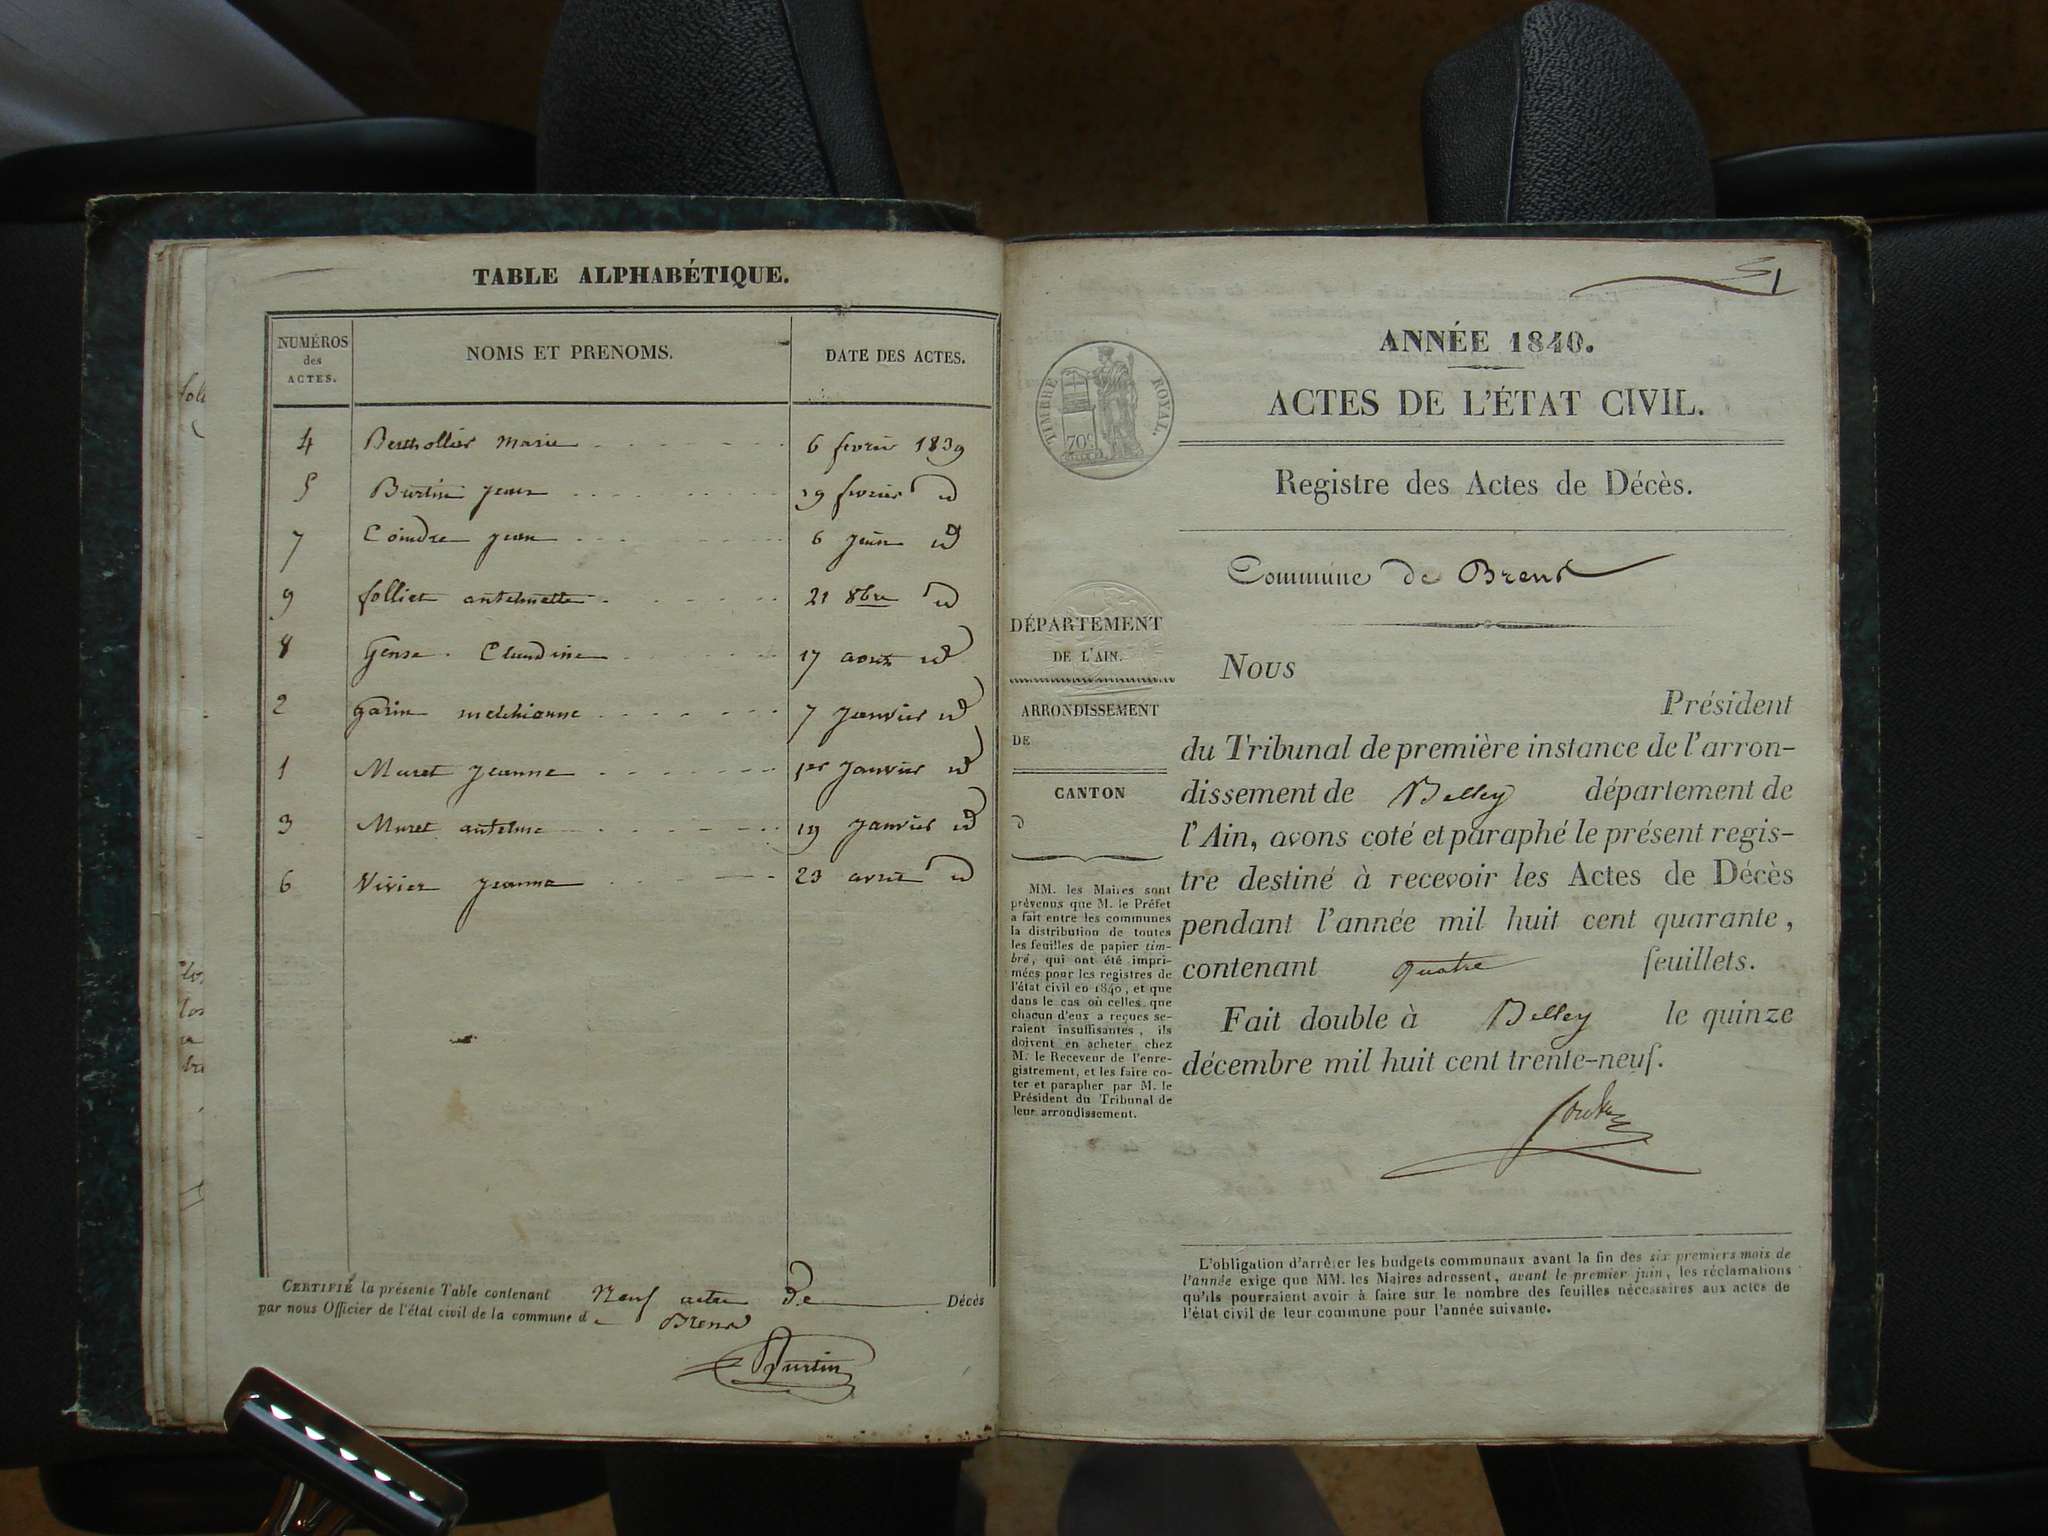 TABLE ALPHABÉTIQUE.
NUMÉROS des ACTES.
NOMS ET PRENOMS.
DATE DES ACTES.
4 Berthollier marie 6 fevrier 1839
5 Burtin jean 19 fevrier id
7 Coindre jean 6 juin id
9 folliet antelmette 21 8bre id
8 Gense Claudine 17 aout id
2 garin melchionne 7 janvier id
1 Muret jeanne 1er janvier id
3 Muret antelme 19 janvier id
6 Vivier jeanne 23 avril id
CERTIFIÉ la présente Table contenant Neuf actes de Décès
par nous Officier de l'état civil de la commune de Brens
Burtin
ANNÉE 1840.
ACTES DE L'ÉTAT CIVIL.
TIMBRE ROYAL.
70c
Registre des Actes de Décès.
Commune de Brens
DÉPARTEMENT
DE L'AIN.
ARRONDISSEMENT
DE
CANTON
d
MM. les Maires sont
prévenus que M. le Préfet
a fait entre les communes
la distribution de toutes
les feuilles de papier tim-
bré, qui ont été impri-
mées pour les registres de
l'état civil en 1840, et que
dans le cas où celles que
chacun d'eux a reçues se-
raient insuffisantes, ils
doivent en acheter chez
M. le Receveur de l'enre-
gistrement, et les faire co-
ter et parapher par M. le
Président du Tribunal de
leur arrondissement.
Nous
Président
du Tribunal de première instance de l'arron-
dissement de Belley département de
l'Ain, avons coté et paraphé le présent regis-
tre destiné à recevoir les Actes de Décès
pendant l'année mil huit cent quarante,
contenant quatre feuillets.
Fait double à Belley le quinze
décembre mil huit cent trente-neuf.
L'obligation d'arrêter les budgets communaux avant la fin des six premiers mois de
l'année exige que MM. les Maires adressent, avant le premier juin, les réclamations
qu'ils pourraient avoir à faire sur le nombre des feuilles nécessaires aux actes de
l'état civil de leur commune pour l'année suivante.